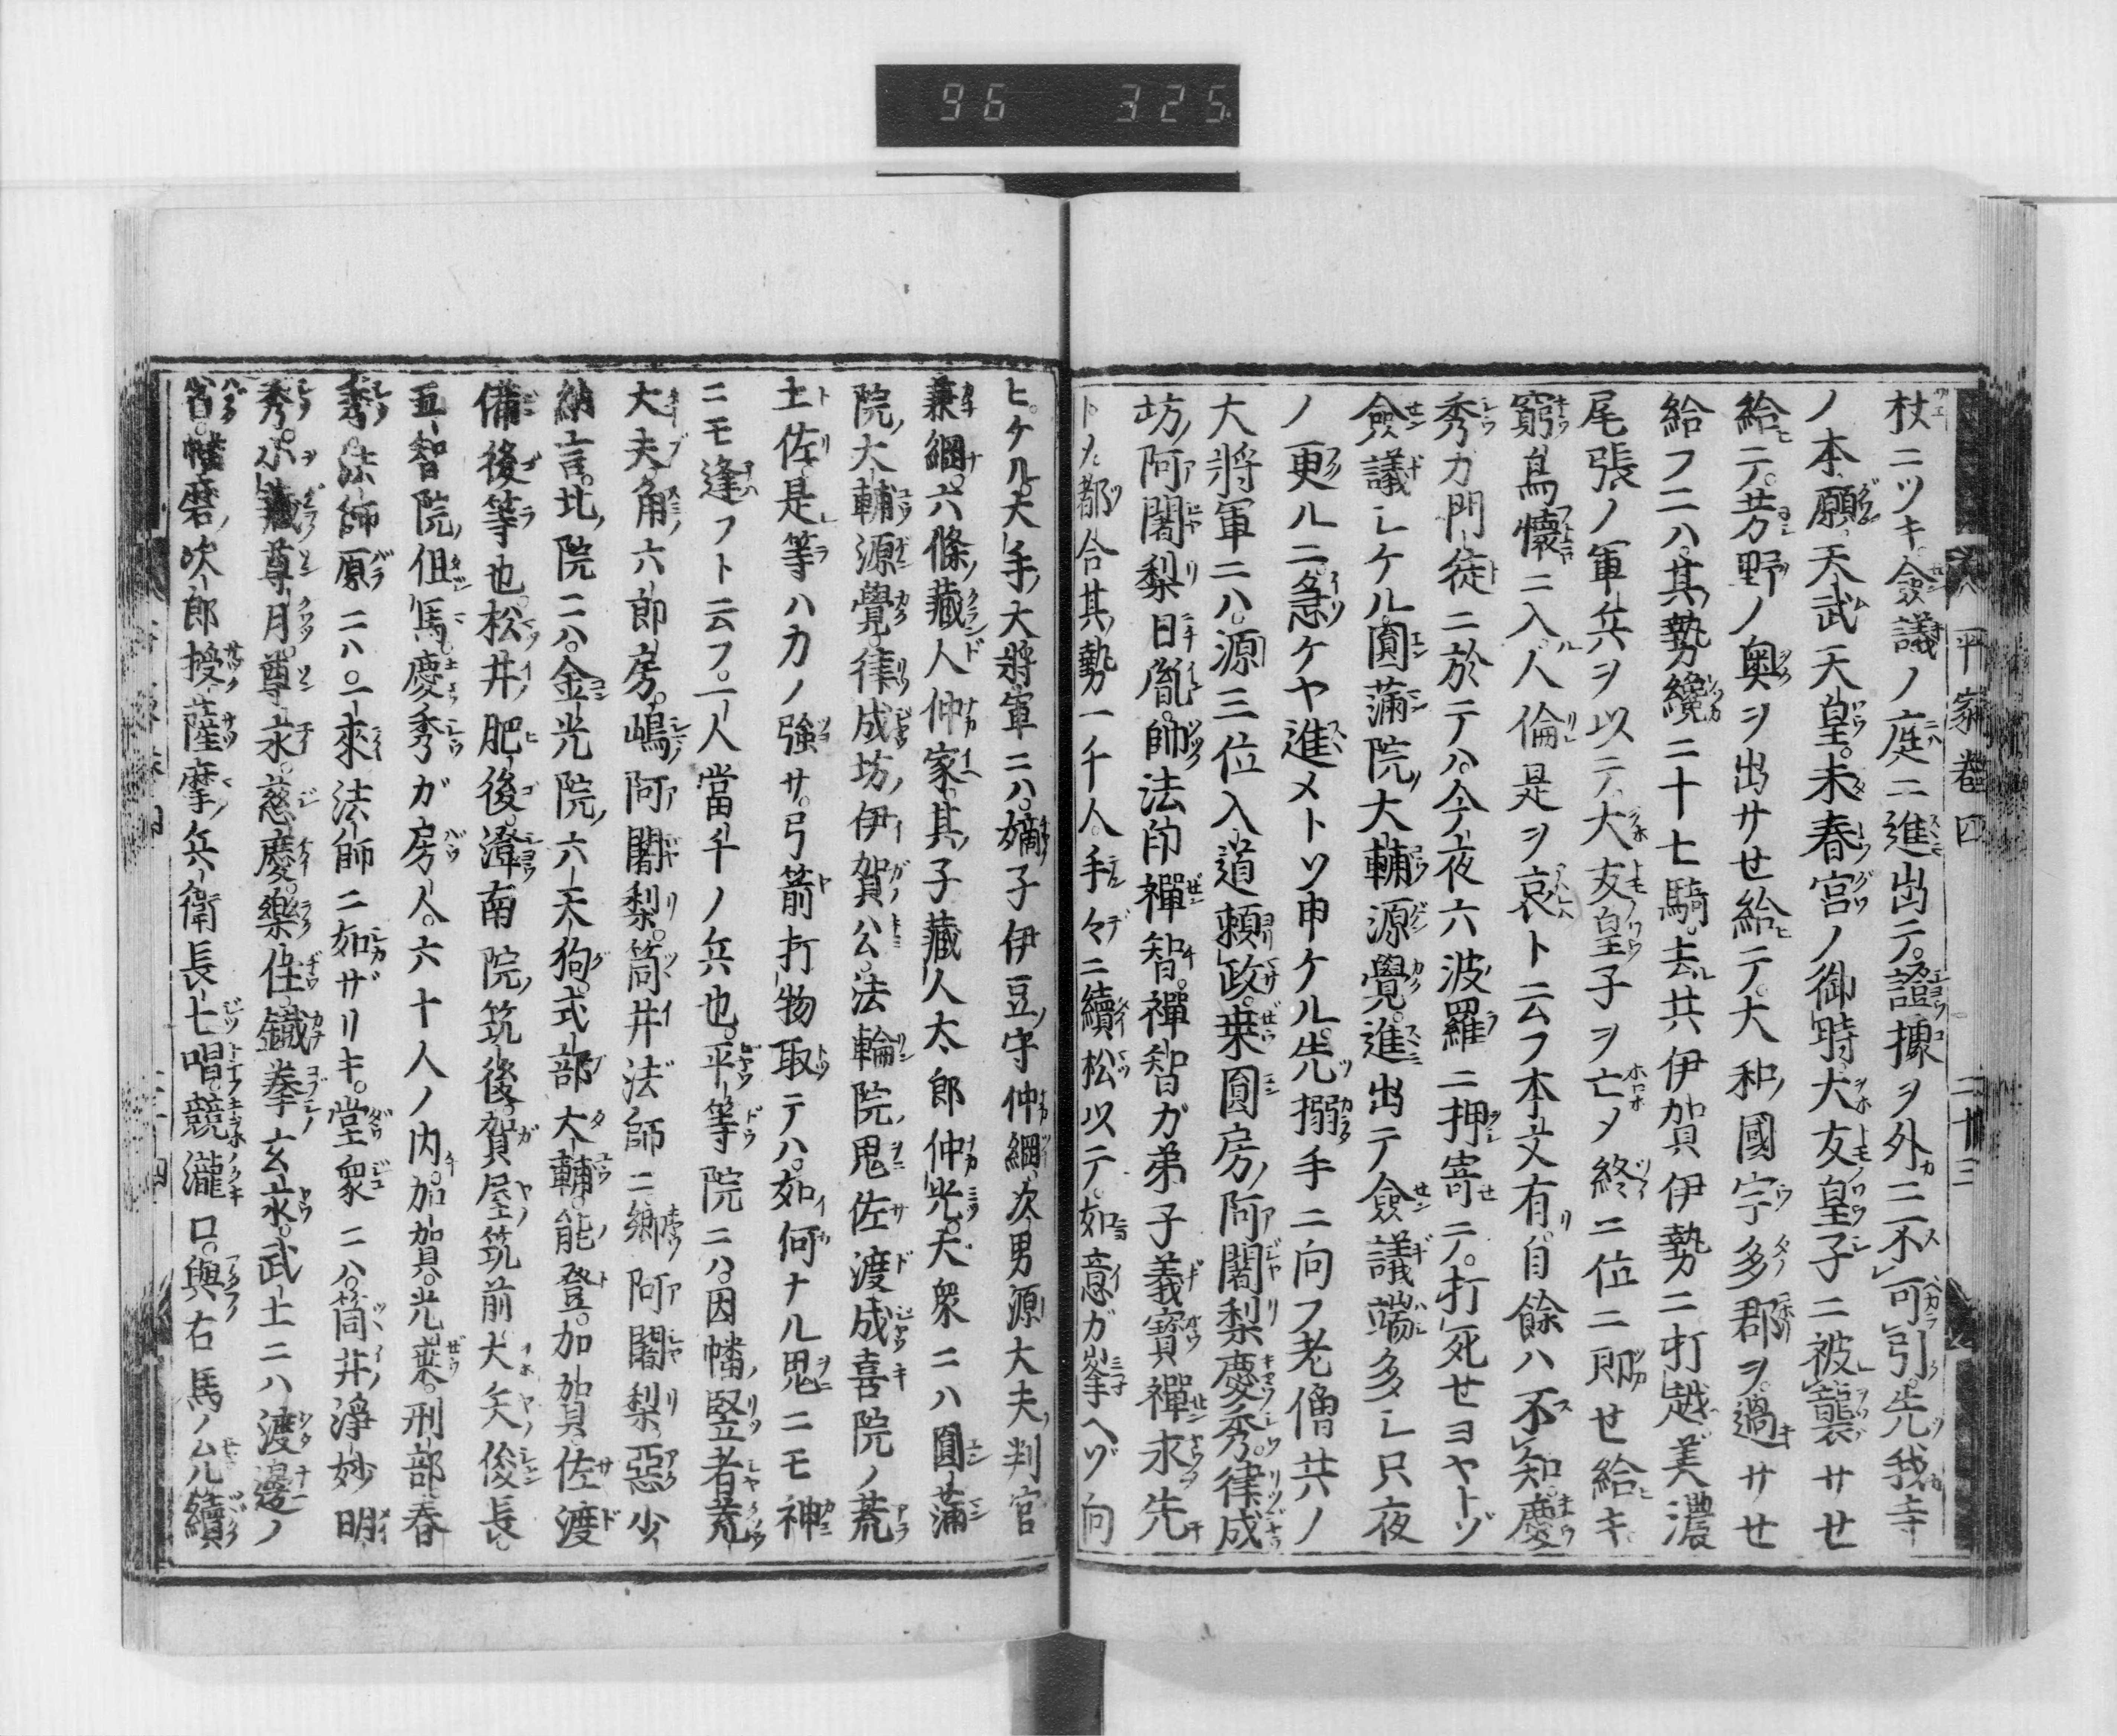 96 325
平家卷四 二十三
杖ニツキ僉議ノ庭ニ進出テ。證據ヲ外ニ不可引。先我寺
ノ本願天武天皇。未春宮ノ御時。大友皇子ニ被襲サせ
給ニテ。芳野ノ奥ヲ出サせ給ニテ。大和國宇多郡ヲ。過サせ
給フニハ。其勢纔ニ十七騎。去共伊賀伊勢ニ打越美濃
尾張ノ軍兵ヲ以テ。大友皇子ヲ亡メ終ニ位ニ即せ給キ。
窮鳥懷ニ入。人倫是ヲ哀ト云フ本文有。自餘ハ不知。慶
秀カ門徒ニ於テハ。今夜六波羅ニ押寄テ。打死セヨヤトゾ
僉議シケル。圓滿院大輔源覺。進出テ僉議端多シ只夜
ノ更ルニ急ケヤ進メトソ申ケル。先搦手ニ向フ老僧共ノ
大將軍ニハ。源三位入道頼政。乗圓房阿闍梨慶秀。律成
坊阿闍梨日胤。帥法印禪智。禪智ガ弟子義寶禪永先
トメ都合其勢一千人。手々ニ續松以テ。如意ガ峯ヘゾ向
ヒケル。大手大將軍ニハ。嫡子伊豆守仲綱。次男源大夫判官
兼綱。六條藏人仲家。其子藏人太郎仲光。大衆ニハ圓滿
院大輔源覺。律成坊伊賀公。法輪院鬼佐渡。成喜院ノ荒
土佐。是等ハカノ強サ。弓箭打物取テハ。如何ナル鬼ニモ神
ニモ逢フト云フ。一人當千ノ兵也。平等院ニハ。因幡竪者荒
大夫。角六郎房。嶋阿闍梨。筒井法師ニ郷阿闍梨。惡少
納言。北院ニハ。金光院六天狗。式部大輔。能登。加賀佐渡
備後等也。松井肥後。澄南院筑後。賀屋筑前。大矢俊長。
五智院但馬。慶秀ガ房人。六十人ノ内。加賀光乗。刑部春
秀。法師原ニハ。一來法師ニ如ザリキ。堂衆ニハ。筒井淨妙明
秀。小藏尊月。尊永。慈慶。樂住。鐵拳玄永。武士ニハ渡邊ノ
省。播磨次郎授。薩摩兵衛長七唱。競瀧口。與右馬ノ允續